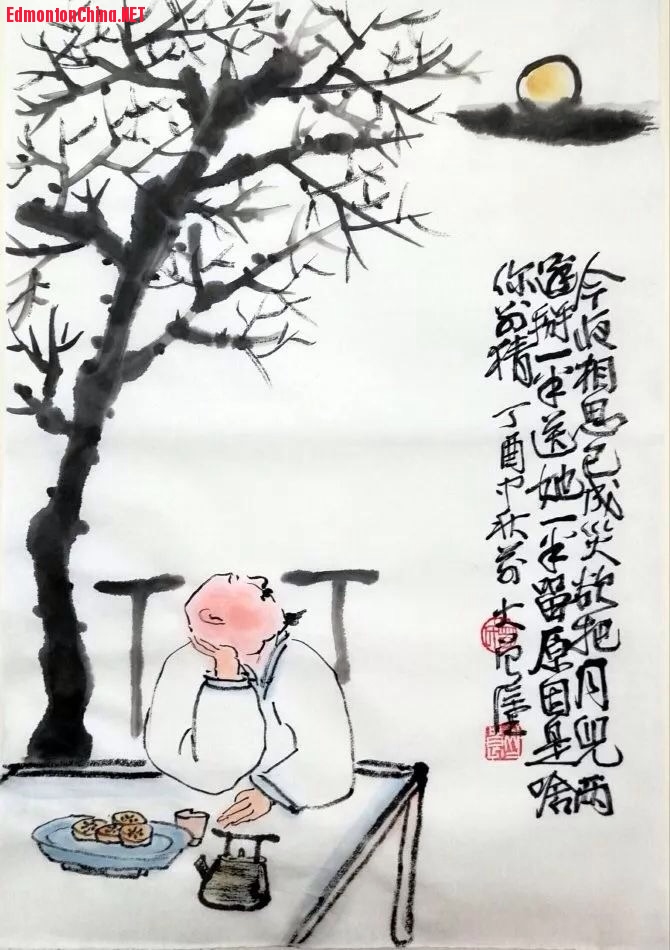 EdmontonChina.NET
今夜相思已成災欲把月兒两
邊掰一半送她一半留原因是啥
你别猜 丁酉中秋前